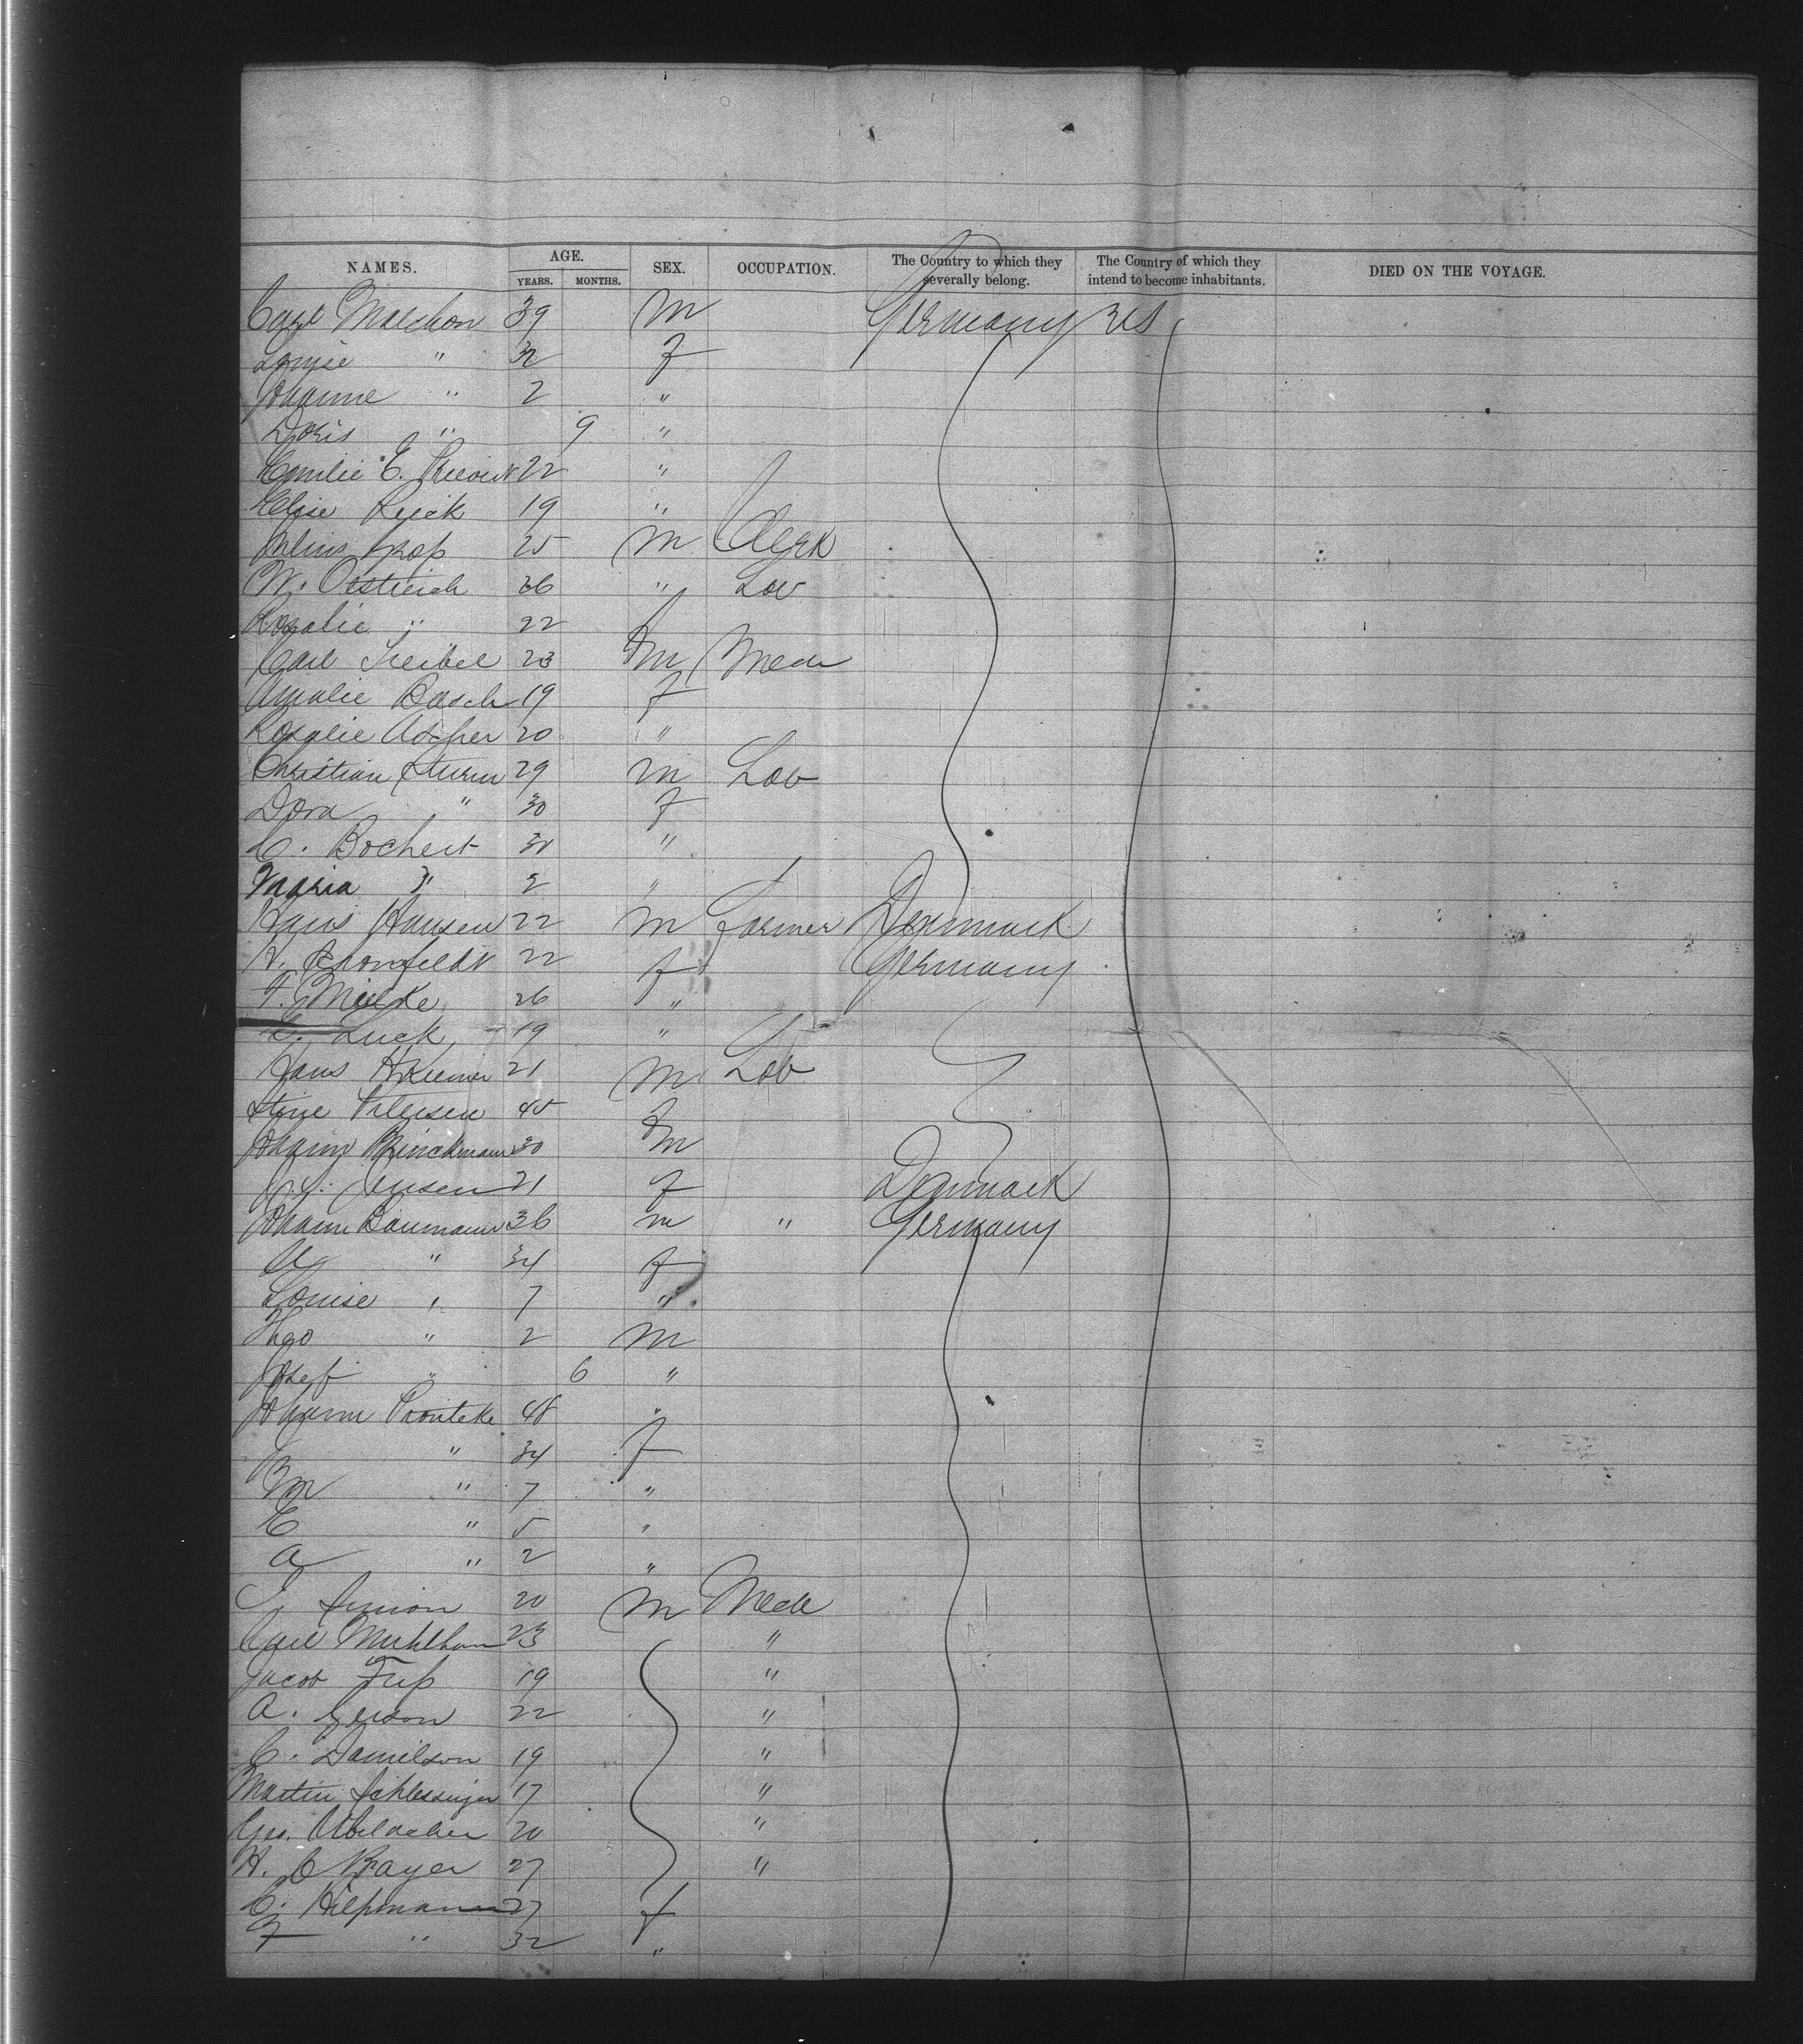 NAMES. AGE. YEARS. MONTHS. SEX. OCCUPATION. The Country to which they severally belong. The Country of which they intend to become inhabitants. DIED ON THE VOYAGE.
Carl Malchon 39 M Germany US
Louise " 32 F
Johanne " 2 "
Doris " 9 "
Emilie E. 22 "
Elise Rieck 19 "
Julius 25 M Clerk
W. Oestreich 26 " Lab
Rosalie " 22 F
Carl Seibel 23 M Mech
Amalie Basch 19 F
Rosalie Ascher 20 "
Christian Sturm 29 M Lab
Dora " 30 F
C. Bochert 31 "
Maria " 2 "
Hans Hansen 22 M Farmer Denmark
H. 22 F Germany
F. Mielke 26 "
Luck 19 "
Hans 21 M Lab
Stine Petersen 45 F
Johann Brinckmann 30 M
Jensen 21 F Denmark
Johann Baumann 36 M " Germany
" 34 F
Louise " 7 "
Hugo " 2 M
Josef " 6 "
Johann 48 "
" 34 F
M " 7 "
E " 5 "
A " 2 "
Simon 20 M Mech
Carl 23 "
Jacob 19 "
A. Gerson 22 "
C. Danielson 19 "
Martin Schlessinger 17 "
Geo. 20 "
H. C Bayer 27 "
C. Hilpmann 27 F
F " 32 "